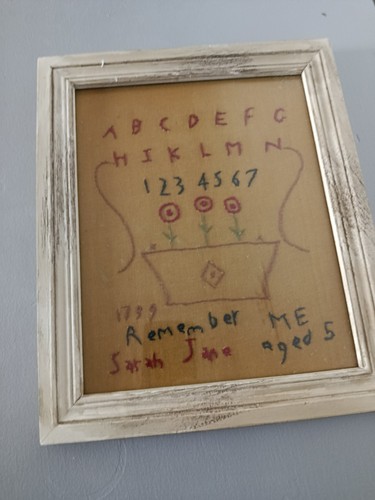 A B C D E F G
H I K L M N
1 2 3 4 5 6 7
1739
Remember ME
Sarah Jane aged 5